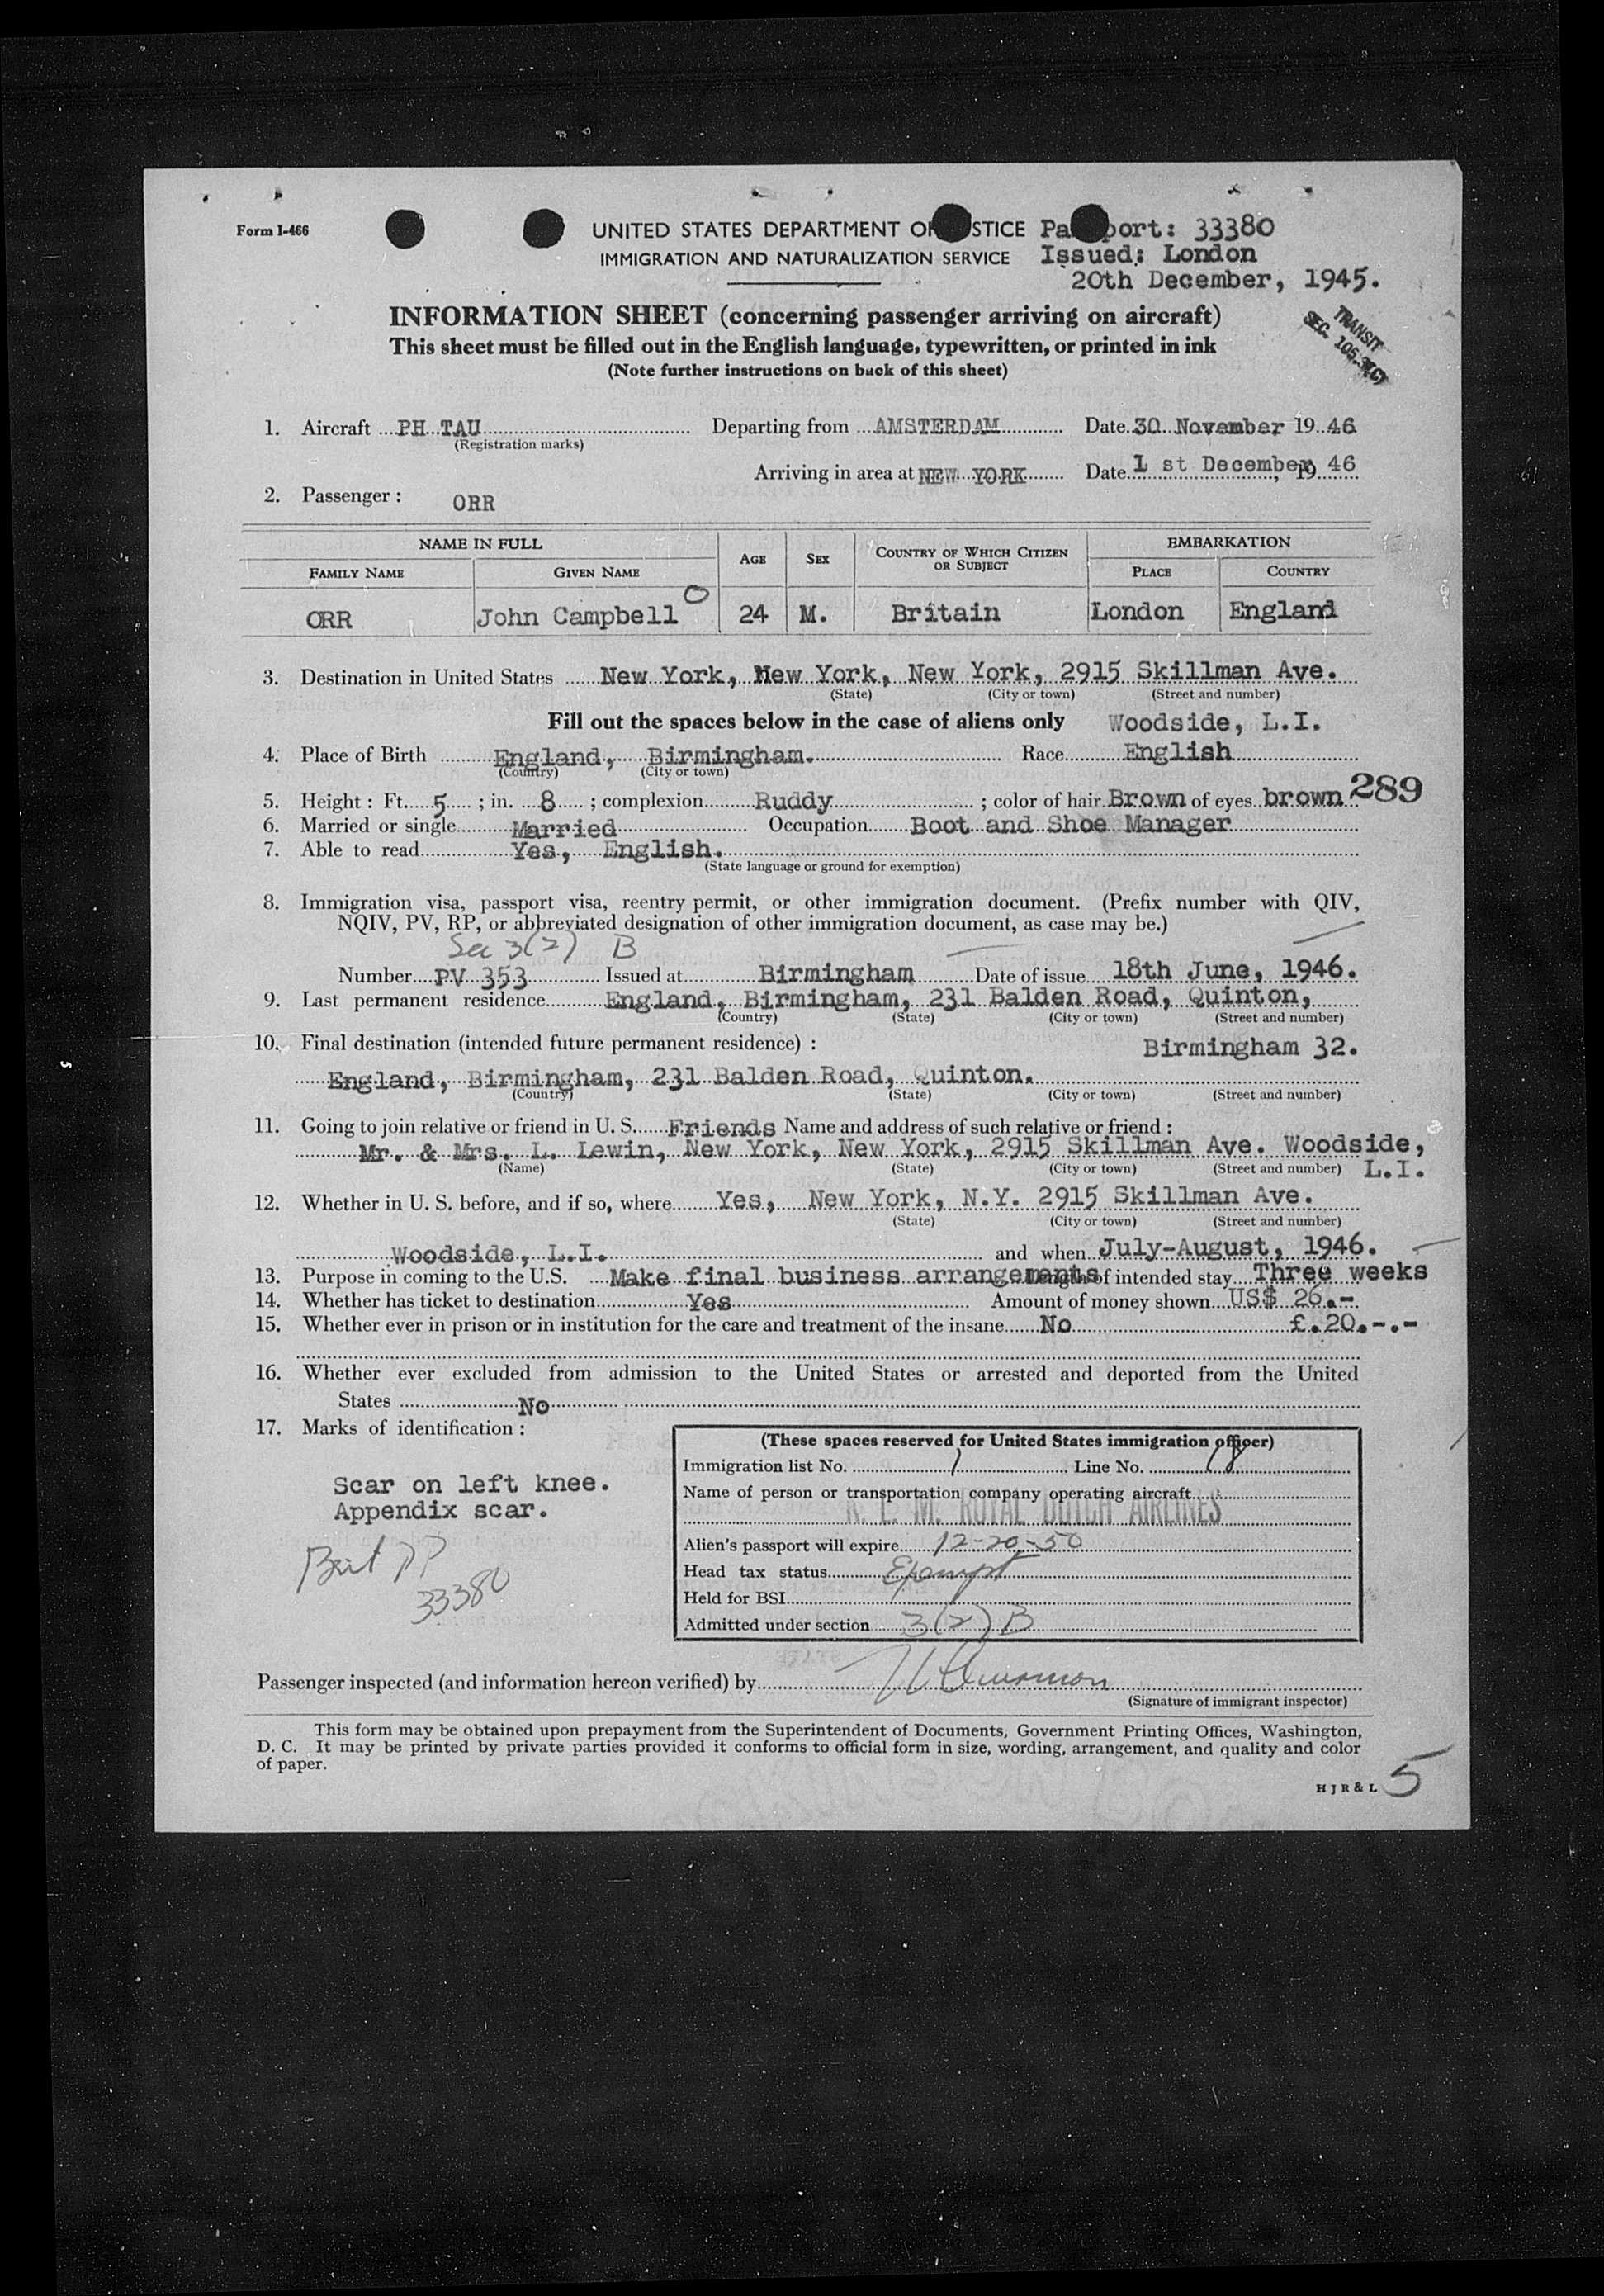 Form I-466
UNITED STATES DEPARTMENT OF STICE Pa port: 33380
IMMIGRATION AND NATURALIZATION SERVICE Issued: London
20th December, 1945.
INFORMATION SHEET (concerning passenger arriving on aircraft)
TRANSIT
SEC.
This sheet must be filled out in the English language, typewritten, or printed in ink
(Note further instructions on back of this sheet)
1. Aircraft PH TAU Departing from AMSTERDAM Date 30 November 19 46
(Registration marks)
Arriving in area at NEW YORK Date 1 st December, 19 46
2. Passenger : ORR
NAME IN FULL AGE SEX COUNTRY OF WHICH CITIZEN OR SUBJECT EMBARKATION
FAMILY NAME GIVEN NAME PLACE COUNTRY
ORR John Campbell 24 M. Britain London England
3. Destination in United States New York, New York, New York, 2915 Skillman Ave.
(State) (City or town) (Street and number)
Fill out the spaces below in the case of aliens only Woodside, L.I.
4. Place of Birth England, Birmingham. Race English
(Country) (City or town)
5. Height : Ft. 5 ; in. 8 ; complexion Ruddy ; color of hair Brown of eyes brown 289
6. Married or single Married Occupation Boot and Shoe Manager
7. Able to read Yes, English.
(State language or ground for exemption)
8. Immigration visa, passport visa, reentry permit, or other immigration document. (Prefix number with QIV,
NQIV, PV, RP, or abbreviated designation of other immigration document, as case may be.)
Sec 3(2) B
Number PV 353 Issued at Birmingham Date of issue 18th June, 1946.
9. Last permanent residence England, Birmingham, 231 Balden Road, Quinton,
(Country) (State) (City or town) (Street and number)
10. Final destination (intended future permanent residence) : Birmingham 32.
England, Birmingham, 231 Balden Road, Quinton.
(Country) (State) (City or town) (Street and number)
11. Going to join relative or friend in U. S. Friends Name and address of such relative or friend :
Mr. & Mrs. L. Lewin, New York, New York, 2915 Skillman Ave. Woodside,
(Name) (State) (City or town) (Street and number) L.I.
12. Whether in U. S. before, and if so, where Yes, New York, N.Y. 2915 Skillman Ave.
(State) (City or town) (Street and number)
Woodside, L.I. and when July-August, 1946.
13. Purpose in coming to the U.S. Make final business arrangements Length of intended stay Three weeks
14. Whether has ticket to destination Yes Amount of money shown US$ 26.-
15. Whether ever in prison or in institution for the care and treatment of the insane No £.20.-.-
16. Whether ever excluded from admission to the United States or arrested and deported from the United
States No
17. Marks of identification :
Scar on left knee.
Appendix scar.
Brit PP
33380
(These spaces reserved for United States immigration officer)
Immigration list No. 1 Line No. 18
Name of person or transportation company operating aircraft
K. L. M. ROYAL DUTCH AIRLINES
Alien's passport will expire 12-20-50
Head tax status Exempt
Held for BSI
Admitted under section 3(2) B
Passenger inspected (and information hereon verified) by
(Signature of immigrant inspector)
This form may be obtained upon prepayment from the Superintendent of Documents, Government Printing Offices, Washington,
D. C. It may be printed by private parties provided it conforms to official form in size, wording, arrangement, and quality and color
of paper.
H J R & L 5